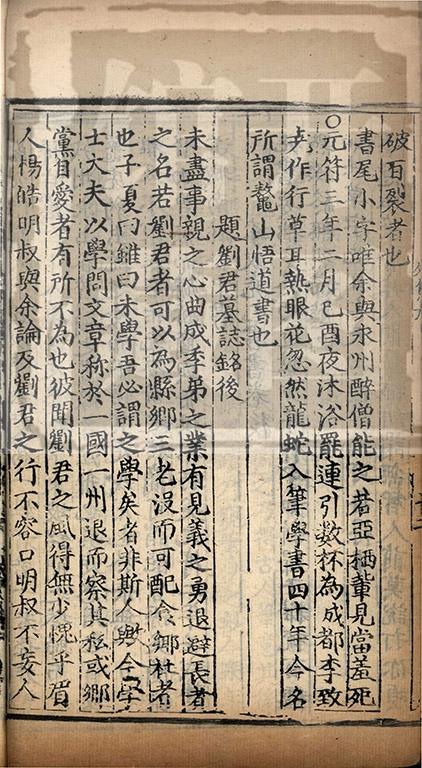 破石裂者也
書尾小字唯余與永州醉僧能之若亞栖輩見當羞死
○元符三年二月己酉夜沐浴罷連引數杯為成都李致
堯作行草耳熱眼花忽然龍蛇入筆學書四十年今名
所謂鼇山悟道書也
題劉君墓誌銘後
未盡事親之心曲成季弟之業有見義之勇退避長者
之名若劉君者可以為縣鄉三老沒而可配食鄉社者
也子夏曰雖曰未學吾必謂之學矣者非斯人歟今學
士大夫以學問文章稱於一國一州退而察其私或鄉
黨自愛者有所不為也彼聞劉君之風得無少愧乎眉
人楊皓明叔與余論及劉君之行不容口明叔不妄人